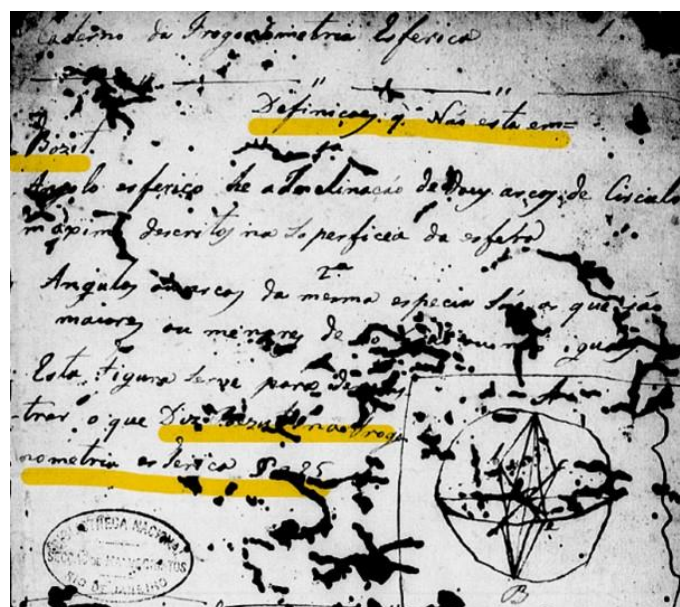 Caderno da Trogonometria Esferica
1
Definicoes q̃ Não esta em=
Bozit.
1ª
Angolo esferico he a decelinação de douy arcos de Circulo
maximos descritos na Soperficia da esfera
2ª
Angulos ou arcos da mesma especia São os que são
maiores ou menores de
Esta figura serve para demons
trar o que Diz na Trogo
nometria esferica P 25
A
B
NACIONAL
SECÇÃO DE MANUSCRIPTOS
RIO DE JANEIRO